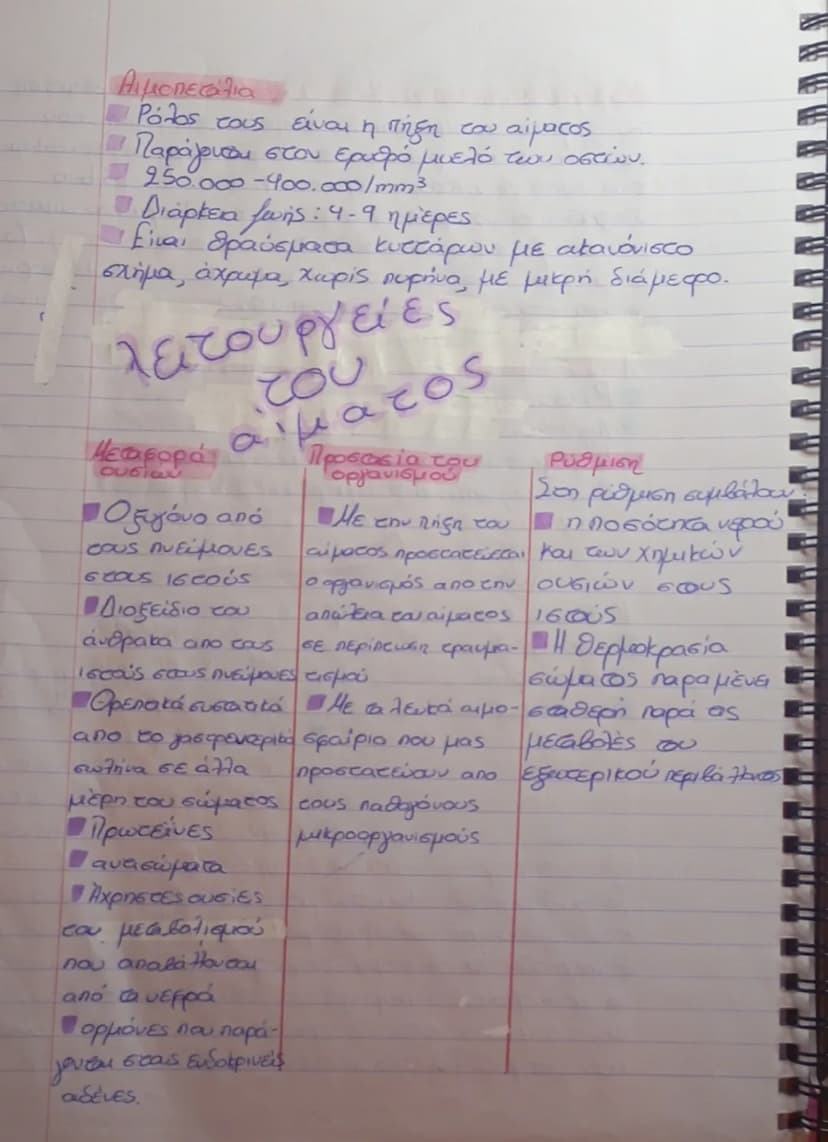 Αιμοπετάλια
Ρόλος τους είναι η πήξη του αίματος
Παράγονται στον ερυθρό μυελό των οστών.
250.000-400.000/mm³
Διάρκεια ζωής: 4-9 ημέρες
Είναι θραύσματα κυττάρων με ακανόνιστο
σχήμα, άχρωμα, χωρίς πυρήνα, με μικρή διάμετρο.
λειτουργείες
του
αίματος
Μεταφορά
ουσιών
Οξυγόνο από
τους πνεύμονες
στους ιστούς
Διοξείδιο του
άνθρακα απο τους
ιστούς στους πνεύμονες
Θρεπτικά συστατικά
απο το γαστρεντερικό
σωλήνα σε άλλα
μέρη του σώματος
Πρωτεΐνες
αντισώματα
Άχρηστες ουσίες
του μεταβολισμού
που αποβάλλονται
από τα νεφρά
ορμόνες που παρά-
γονται στους ενδοκρινείς
αδένες.
Προστασία του
οργανισμού
Με την πήξη του
αίματος προστατεύεται
ο οργανισμός απο την
απώλεια του αίματος
σε περίπτωση τραυμα-
τισμού
Με τα λευκά αιμο-
σφαίρια που μας
προστατεύουν απο
τους παθογόνους
μικροοργανισμούς
Ρύθμιση
Στη ρύθμιση συμβάλλουν:
η ποσότητα νερού
και των χημικών
ουσιών στους
ιστούς
Η θερμοκρασία
σώματος παραμένει
σταθερή παρά τις
μεταβολές του
εξωτερικού περιβάλλοντος